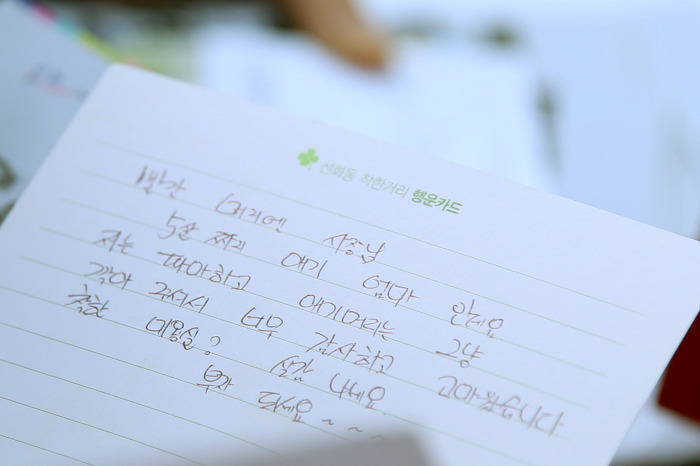 선화동 착한거리 행운카드
빨간 머리엔 사장님
5살 짜리 애기 엄마 인데요
저는 파마하고 애기머리는 그냥
깎아 주셔서 너무 감사하고 고마웠습니다
착한 미용실? 실감 나세요.
부자 되세요~~~